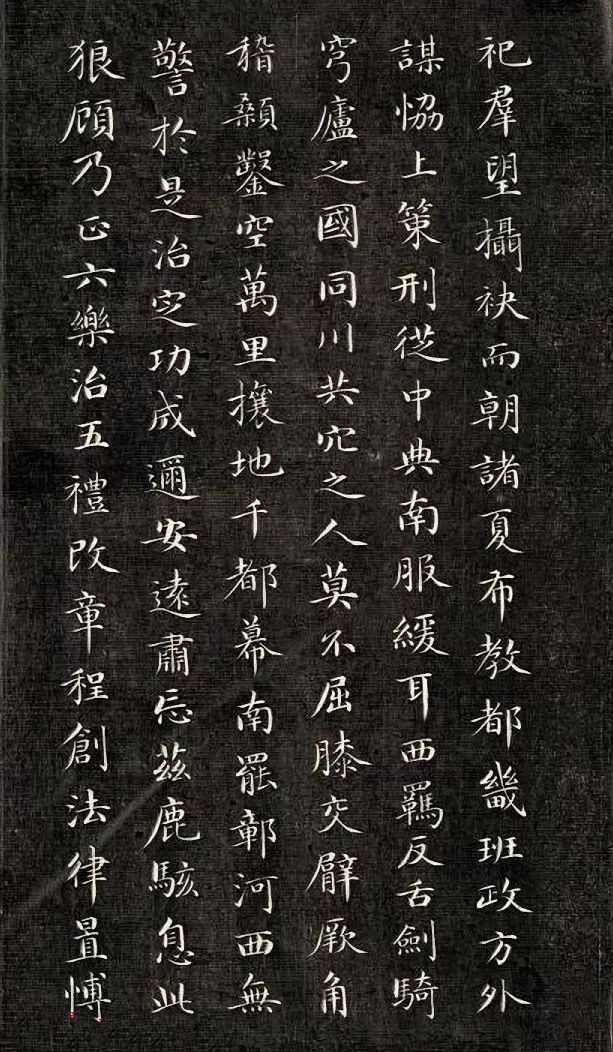 祀羣望攝袂而朝諸夏布教都畿班政方外
謀恊上策刑從中典南服緩耳西羈反舌劍騎
穹廬之國同川共穴之人莫不屈膝交臂厥角
稽顙鑿空萬里攘地千都幕南罷鄣河西無
警於是治定功成邇安遠肅忘茲鹿駭息此
狼顧乃正六樂治五禮改章程創法律置博